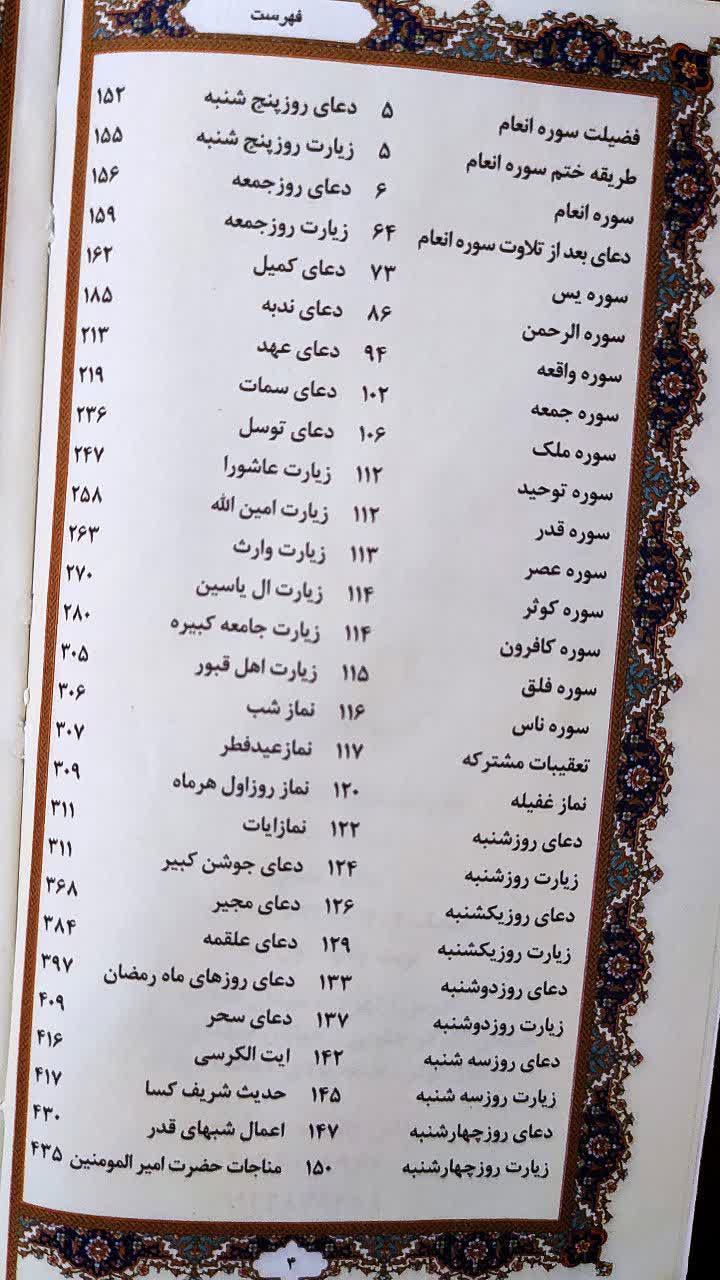 فهرست
فضیلت سوره انعام ۵
طریقه ختم سوره انعام ۵
سوره انعام ۶
دعای بعد از تلاوت سوره انعام ۶۴
سوره یس ۷۳
سوره الرحمن ۸۶
سوره واقعه ۹۴
سوره جمعه ۱۰۲
سوره ملک ۱۰۶
سوره توحید ۱۱۲
سوره قدر ۱۱۲
سوره عصر ۱۱۳
سوره کوثر ۱۱۴
سوره کافرون ۱۱۴
سوره فلق ۱۱۵
سوره ناس ۱۱۶
تعقیبات مشترکه ۱۱۷
نماز غفیله ۱۲۰
دعای روزشنبه ۱۲۲
زیارت روزشنبه ۱۲۴
دعای روزیکشنبه ۱۲۶
زیارت روزیکشنبه ۱۲۹
دعای روزدوشنبه ۱۳۳
زیارت روزدوشنبه ۱۳۷
دعای روزسه شنبه ۱۴۲
زیارت روزسه شنبه ۱۴۵
دعای روزچهارشنبه ۱۴۷
زیارت روزچهارشنبه ۱۵۰
دعای روزپنج شنبه ۱۵۲
زیارت روزپنج شنبه ۱۵۵
دعای روزجمعه ۱۵۶
زیارت روزجمعه ۱۵۹
دعای کمیل ۱۶۲
دعای ندبه ۱۸۵
دعای عهد ۲۱۳
دعای سمات ۲۱۹
دعای توسل ۲۳۶
زیارت عاشورا ۲۴۷
زیارت امین الله ۲۵۸
زیارت وارث ۲۶۳
زیارت ال یاسین ۲۷۰
زیارت جامعه کبیره ۲۸۰
زیارت اهل قبور ۳۰۵
نماز شب ۳۰۶
نمازعیدفطر ۳۰۷
نماز روزاول هرماه ۳۰۹
نمازایات ۳۱۱
دعای جوشن کبیر ۳۱۱
دعای مجیر ۳۶۸
دعای علقمه ۳۸۴
دعای روزهای ماه رمضان ۳۹۷
دعای سحر ۴۰۹
ایت الکرسی ۴۱۶
حدیث شریف کسا ۴۱۷
اعمال شبهای قدر ۴۳۰
مناجات حضرت امیر المومنین ۴۳۵
۳